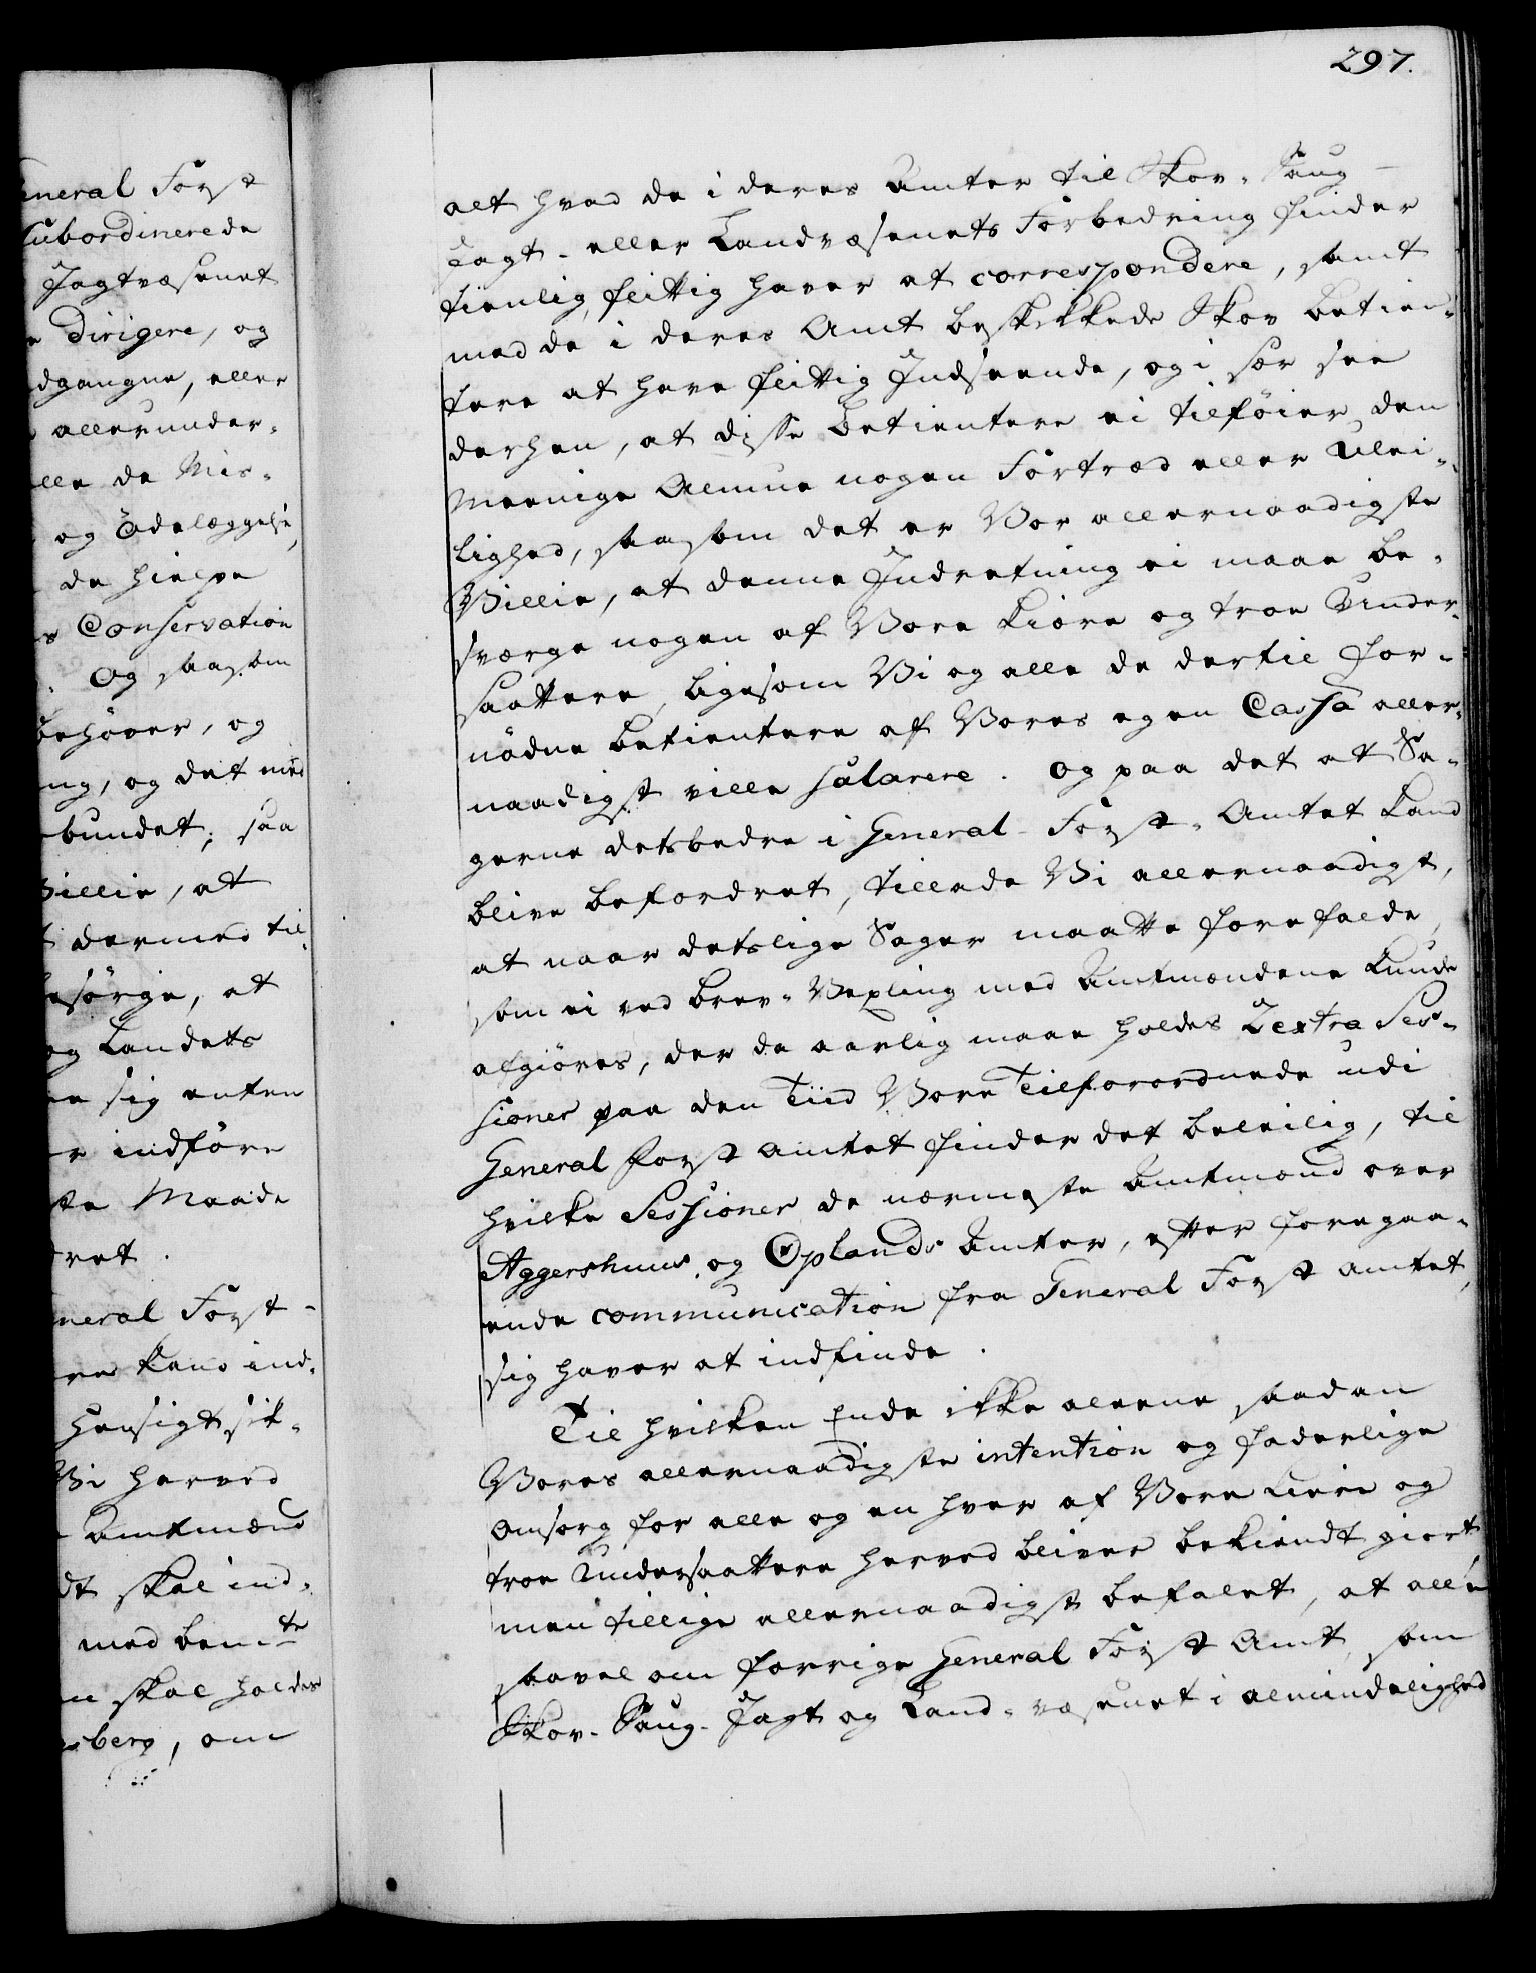 297.
eneral Forst
Subordinerede
Jagtvæsenet
e dirigere, og
dgangne, eller
allerunder-
lle de Mis-
og Ødelæggelse,
de hielpe
s Conservation
. Og saasom
behøver, og
ng, og det med
bundet; saa
Villie, at
t dermed til-
esørge, at
og Landets
re sig enten
er indføre
te Maade
ret.
neral Forst-
ne kand ind-
Hensigt sik-
Vi herved
Amtmænd
dt skal ind-
med bemte
n skal holdes
sberg, om
alt hvad de i deres Amter til Skov- Saug-
Jagt- eller Landvæsenets Forbedring finder
tienlig, flittig haver at correspondere, samt
med de i deres Amt beskikkede Skov betien-
tere at have flittig Indseende, og i sær see
derhen, at disse Betientere ei tilføier den
Meenige Almue nogen Fortræd eller Ulei-
lighed, saasom det er Vor allernaadigste
Villie, at denne Indretning ei maae be-
sværge nogen af Vore kiære og troe Under-
saattere, ligesom Vi og alle de dertil for-
nødne Betientere af Vores egen Cassa aller-
naadigst ville salarere. Og paa det at Sa-
gerne detsbedre i General-Forst-Amtet kand
blive befordret, tillade Vi allernaadigst,
at naar detslige Sager maatte forefalde,
som ei ved Brev-Vexling med Amtmændene kunde
afgiøres, der da aarlig maae holdes 2 extra Ses-
sioner paa den Tiid Vore Tilforordnede udi
General Forst Amtet finder det beleilig, til
hvilke Sessioner de nærmeste Amtmænd over
Aggershuus og Oplands Amter, efter foregaa-
ende communication fra General Forst Amtet,
sig haver at indfinde.
Til hvilken Ende ikke alleene saadan
Vores allernaadigste intention og faderlige
Omsorg for alle og en hver af Vore kiere og
troe Undersaattere herved bliver bekiendt giort
men tillige allernaadigst befalet, at alle
saavel om forrige General Forst Amt, som
Skov- Saug- Jagt og Land-væsenet i almindelighed